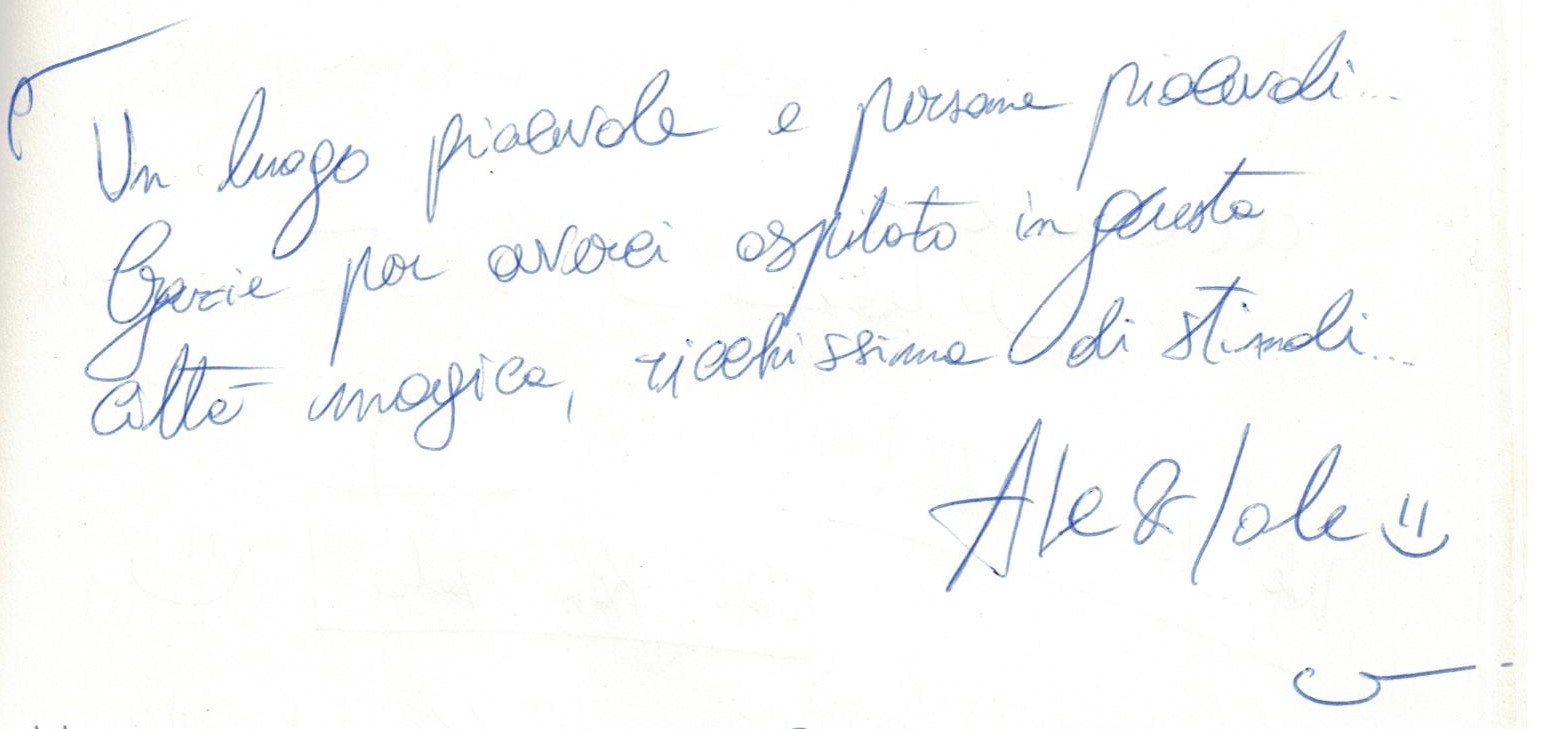 Un luogo piacevole e persone piacevoli...
Grazie per averci ospitato in questa
città magica, ricchissima di stimoli...
Ale & Iole